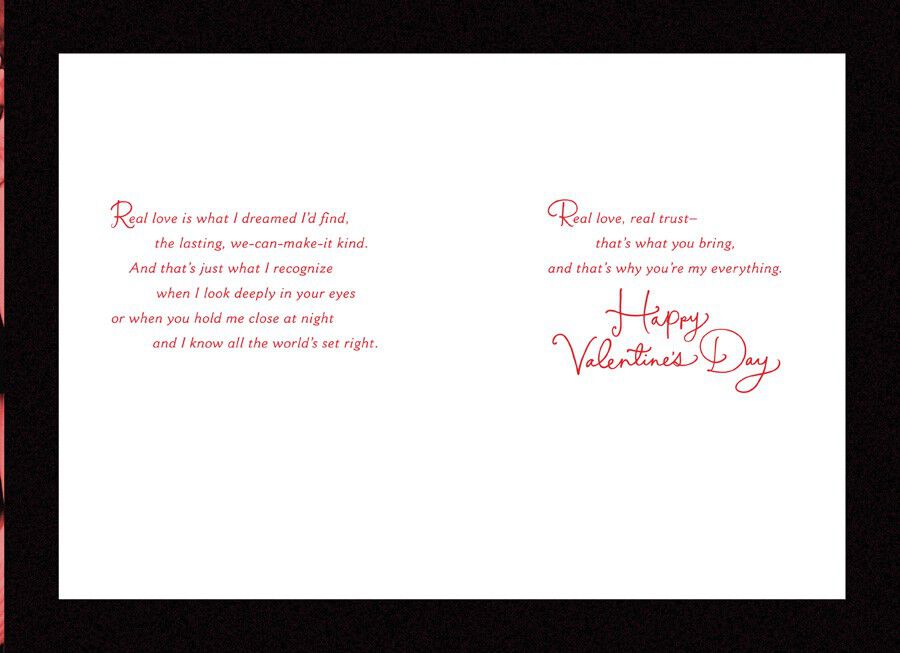 Real love is what I dreamed I'd find,
the lasting, we-can-make-it kind.
And that's just what I recognize
when I look deeply in your eyes
or when you hold me close at night
and I know all the world's set right.
Real love, real trust–
that's what you bring,
and that's why you're my everything.
Happy
Valentine's Day